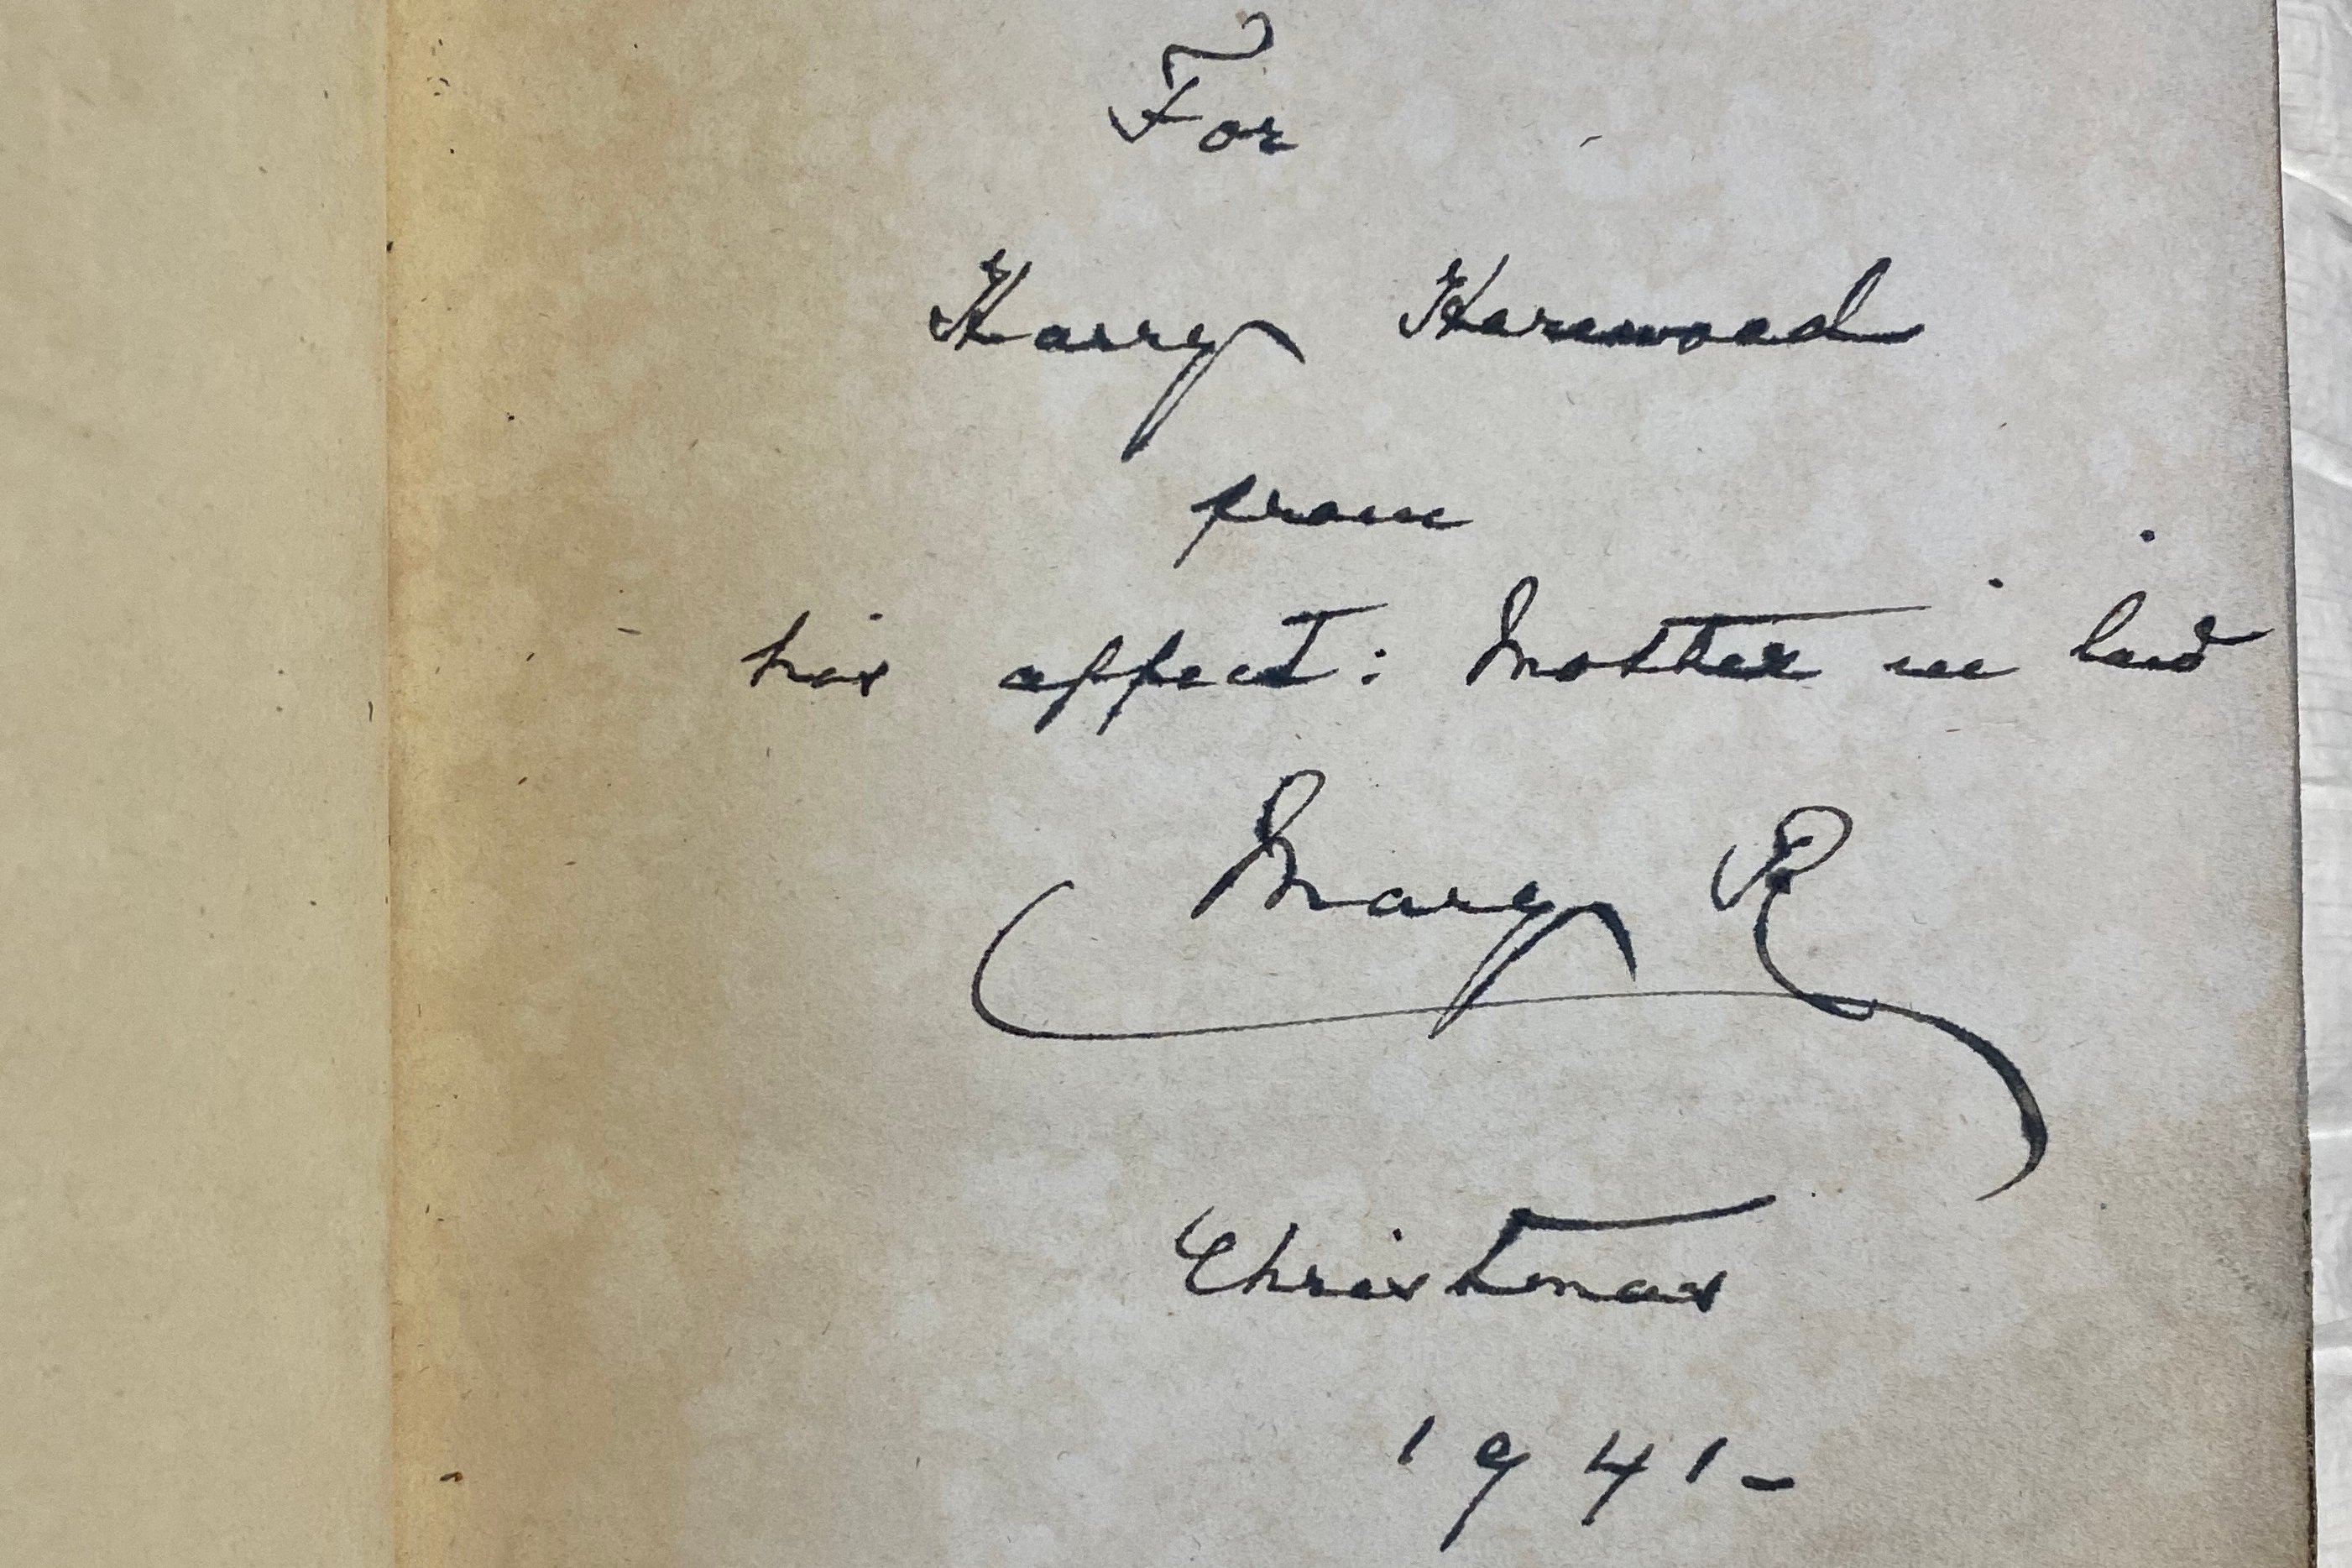 For
Harry Harewood
from
his affect: Mother in law
Mary R
Christmas
1941-